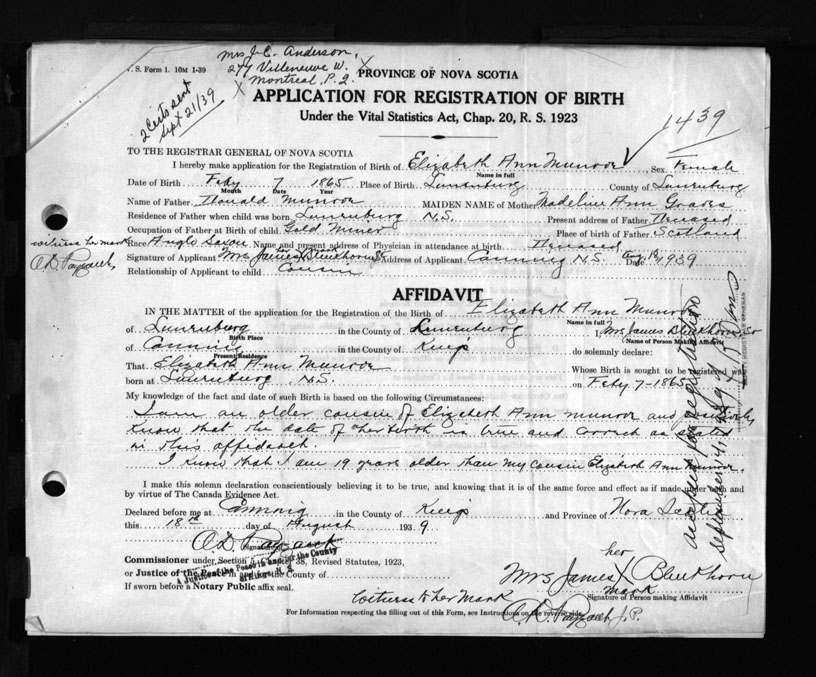 V. S. Form 1. 10M 1-39
Mrs J. C. Anderson,
277 Villeneuve W.
Montreal, P. Q.
2 Certs sent
Sept 21/39
PROVINCE OF NOVA SCOTIA
APPLICATION FOR REGISTRATION OF BIRTH
Under the Vital Statistics Act, Chap. 20, R. S. 1923
1439
TO THE REGISTRAR GENERAL OF NOVA SCOTIA
I hereby make application for the Registration of Birth of Elizabeth Ann Munroe Sex Female
Name in full
Date of Birth Feby 7 1865 Place of Birth Lunenburg County of Lunenburg
Month Date Year
Name of Father Donald Munroe MAIDEN NAME of Mother Madeline Ann Graves
Residence of Father when child was born Lunenburg N.S. Present address of Father Deceased
Occupation of Father at Birth of child Gold Miner Place of birth of Father Scotland
witness her mark
Race Anglo Saxon Name and present address of Physician in attendance at birth Deceased
Signature of Applicant Mrs James X Blenkhorn Sr Address of Applicant Canning N.S. Date Aug 18 1939
her mark
Relationship of Applicant to child Cousin
AFFIDAVIT
IN THE MATTER of the application for the Registration of the Birth of Elizabeth Ann Munroe
Name in full
of Lunenburg in the County of Lunenburg I, Mrs James Blenkhorn Sr
Birth Place
Name of Person Making Affidavit
of Canning in the County of Kings do solemnly declare:
Present Residence
That Elizabeth Ann Munroe Whose Birth is sought to be registered was
born at Lunenburg N.S. on Feby 7-1865
My knowledge of the fact and date of such Birth is based on the following Circumstances:
I am an older cousin of Elizabeth Ann Munroe and positively
know that the date of her birth is true and correct as stated
in this affidavit.
I know that I am 19 years older than my cousin Elizabeth Ann Munroe.
I make this solemn declaration conscientiously believing it to be true, and knowing that it is of the same force and effect as if made under oath and
by virtue of The Canada Evidence Act.
Declared before me at Canning in the County of Kings and Province of Nova Scotia
this 18th day of August 1939
Commissioner under Section 38, Revised Statutes, 1923,
or Justice of the Peace in and for the County of
A Justice of the Peace in and for the County
of Kings, N. S.
If sworn before a Notary Public affix seal.
her
Mrs James X Blenkhorn
mark
Signature of Person making Affidavit
Witness to her Mark
J.P.
For Information respecting the filling out of this Form, see Instructions on the reverse side.
accepted for registration
September 21, 1939